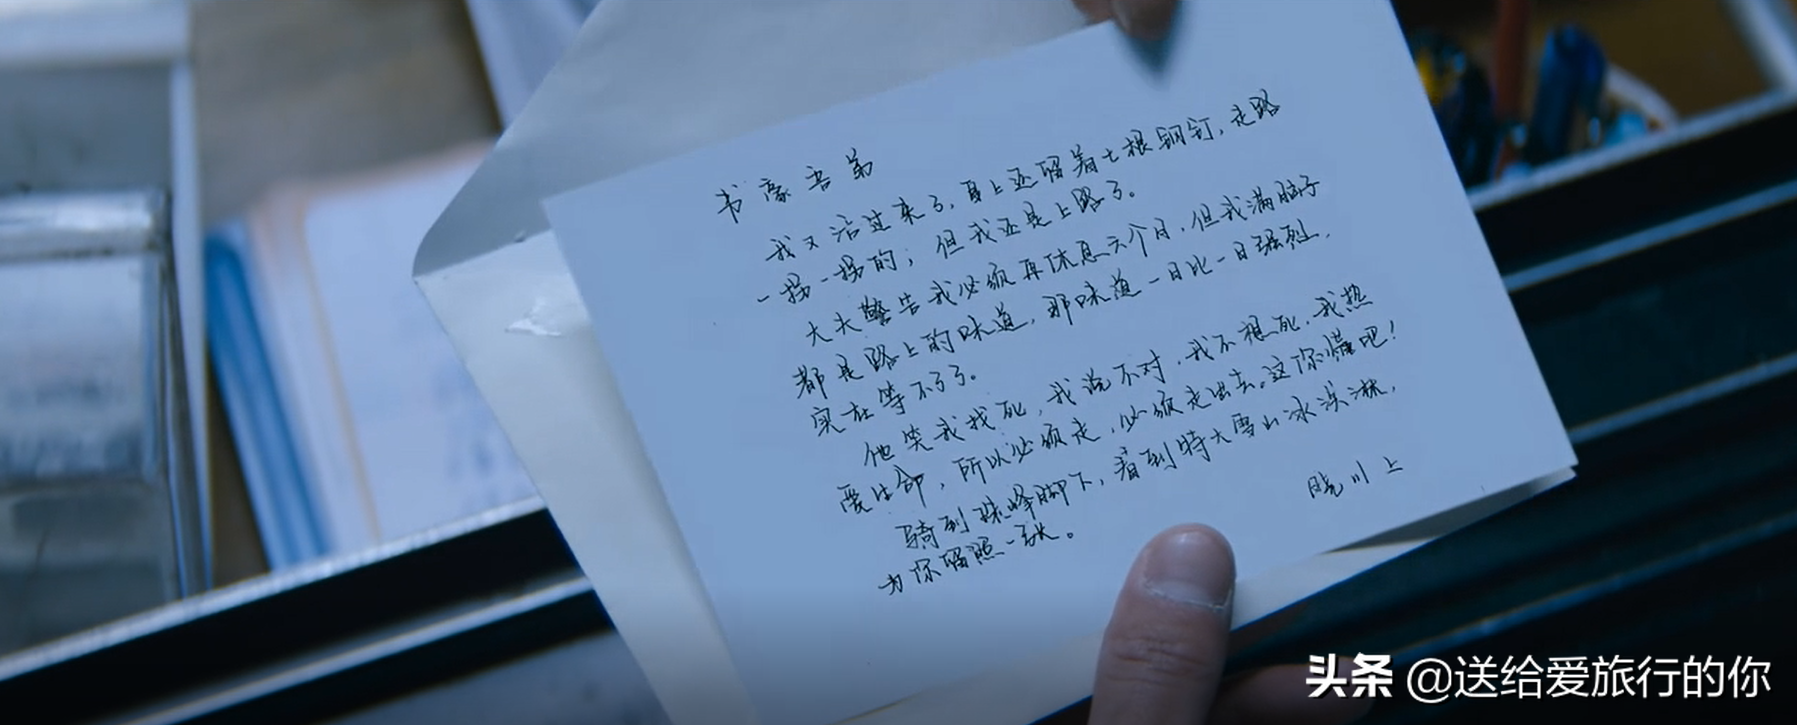 书豪吾弟
我又活过来了，身上还留着七根钢钉，走路
一拐一拐的；但我还是上路了。
大夫警告我必须再休息六个月，但我满脑子
都是路上的味道，那味道一日比一日强烈，
实在等不了了。
他笑我找死，我说不对，我不想死，我热
爱生命，所以必须走，必须走出去。这你懂吧！
骑到珠峰脚下，看到特大雪山冰淇淋，
为你留照一张。
晓川 上
头条 @送给爱旅行的你